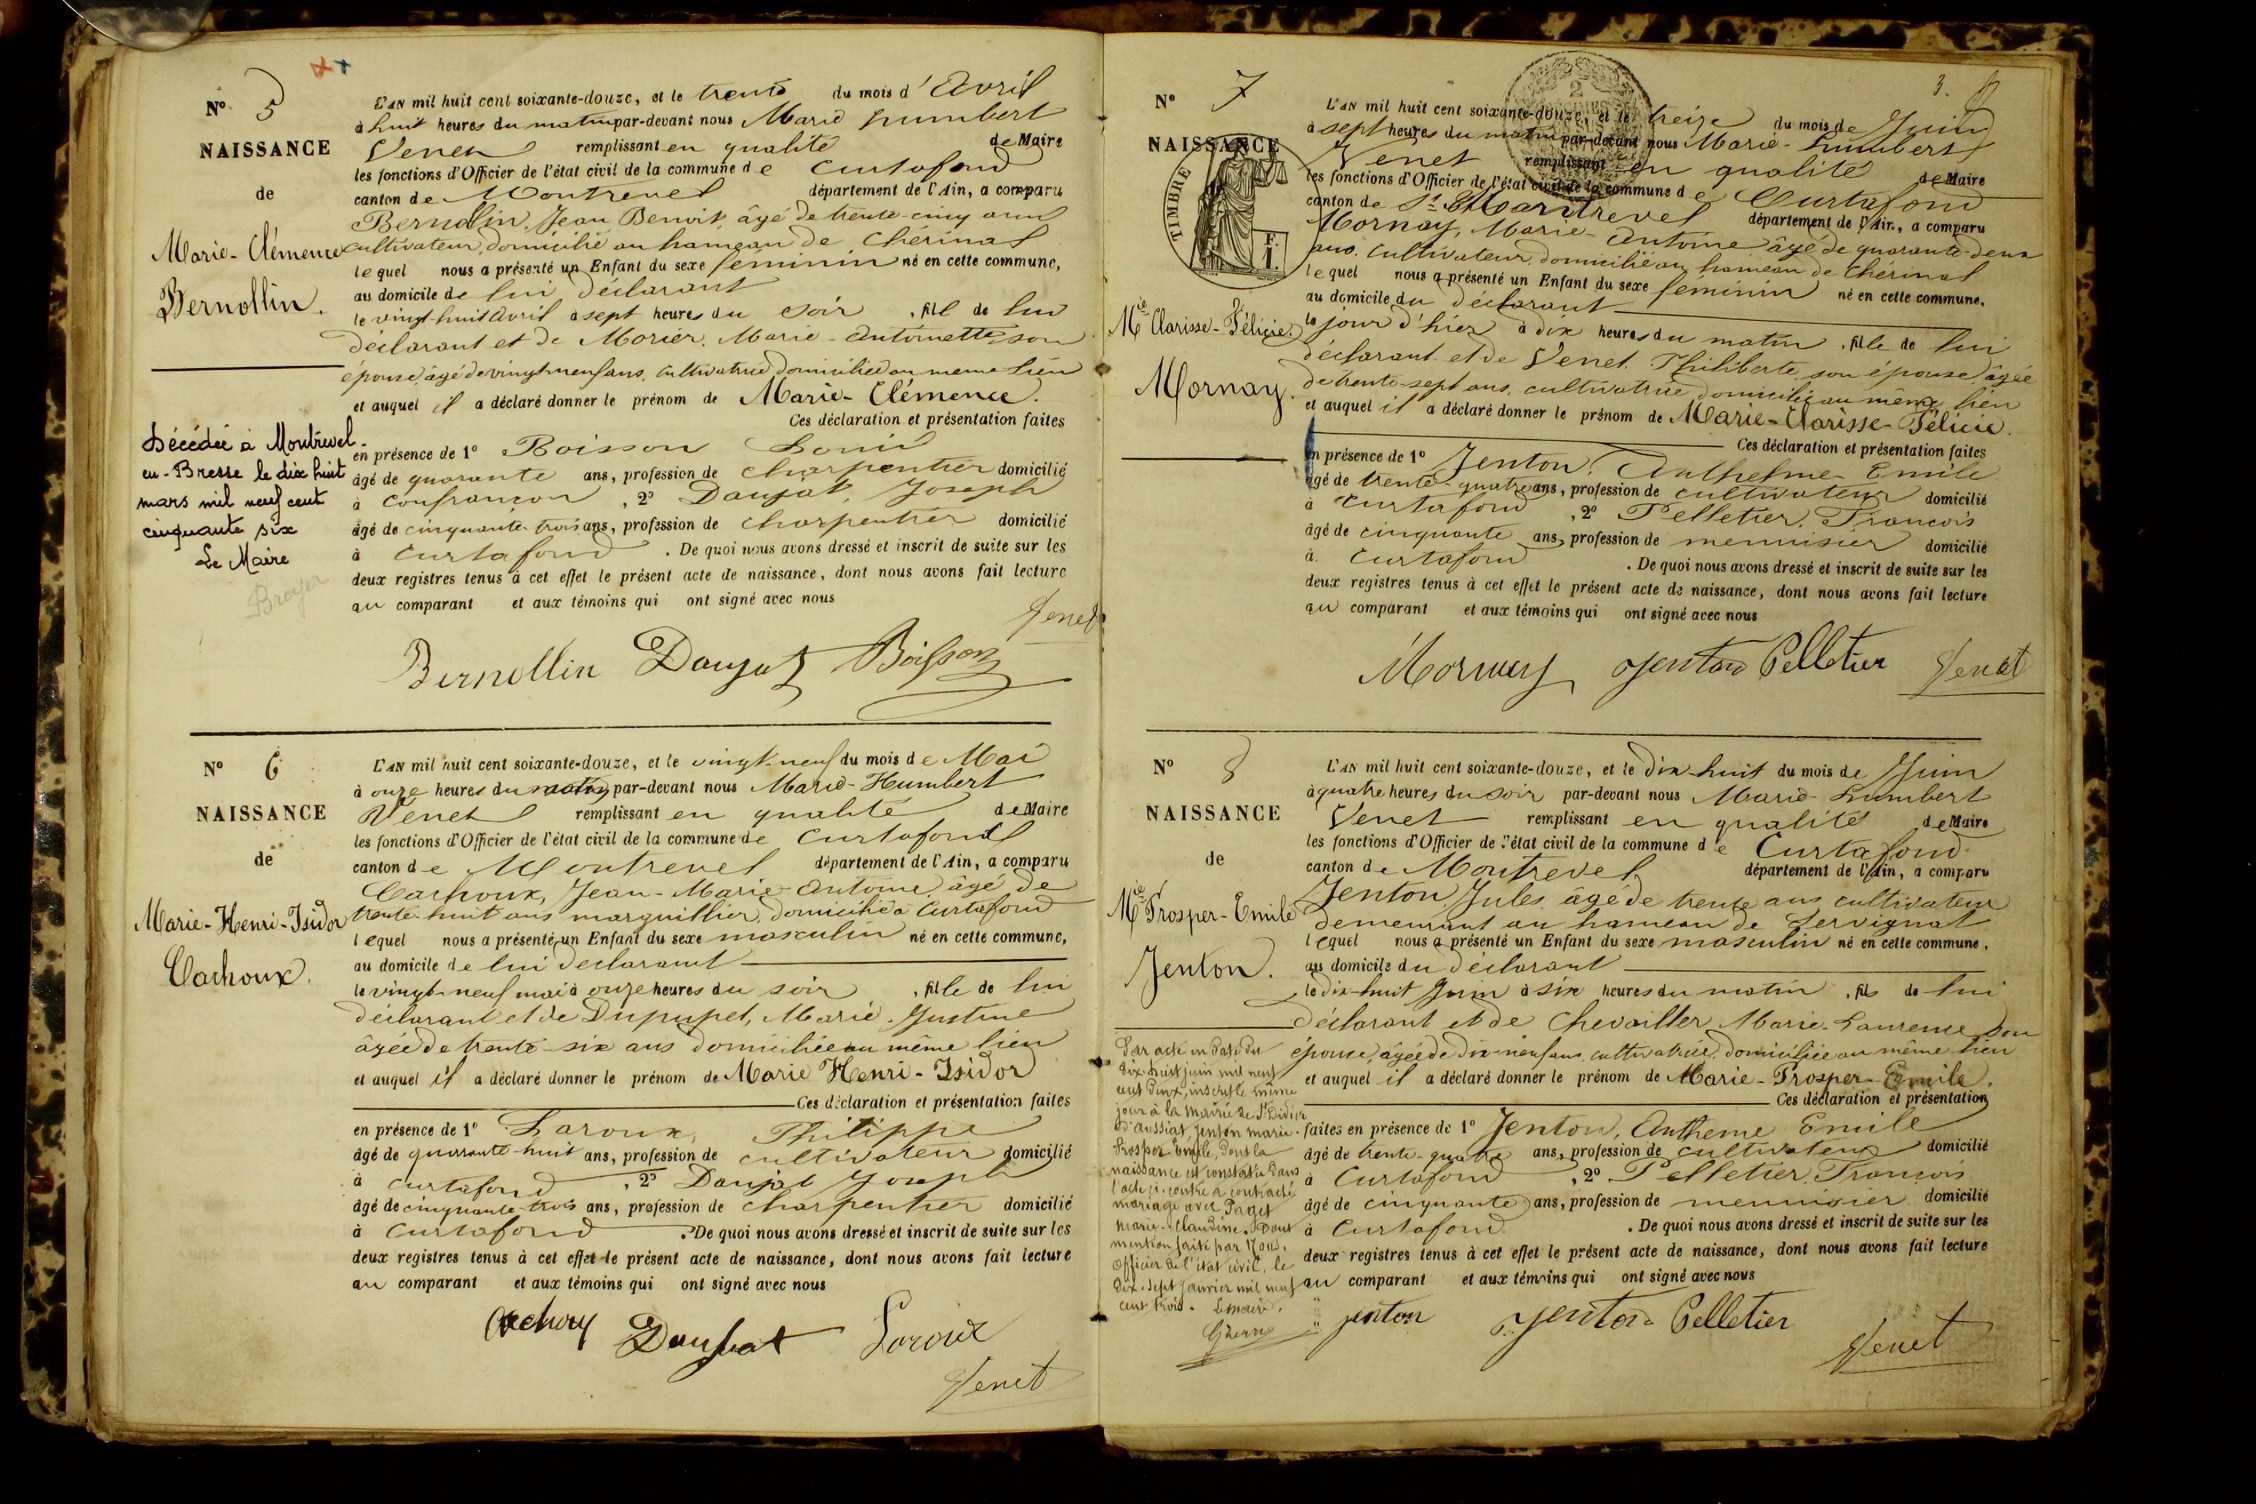 N° 5
NAISSANCE
de
Marie-Clémence
Bernollin.
Décédée à Montrevel-
en-Bresse le dix huit
mars mil neuf cent
cinquante six
Le Maire
Broyer
L'AN mil huit cent soixante-douze, et le trente du mois d'Avril
à huit heures du matin par-devant nous Marie humbert
Venet remplissant en qualité de Maire
les fonctions d'Officier de l'état civil de la commune de Curtafond
canton de Montrevel département de l'Ain, a comparu
Bernollin, Jean Benoit, âgé de trente-cinq ans
cultivateur, domicilié au hameau de Chérinal
lequel nous a présenté un Enfant du sexe feminin né en cette commune,
au domicile de lui déclarant
le vingt-huit avril à sept heures du soir, fil de lui
déclarant et de Morier, Marie-Antoinette son
épouse, âgé de vingt neuf ans, cultivatrice, domiciliée au même lieu
et auquel il a déclaré donner le prénom de Marie-Clémence.
Ces déclaration et présentation faites
en présence de 1° Boisson Louis
âgé de quarante ans, profession de charpentier domicilié
à Confrançon, 2° Daujat, Joseph
âgé de cinquante-trois ans, profession de charpentier domicilié
à Curtafond. De quoi nous avons dressé et inscrit de suite sur les
deux registres tenus à cet effet le présent acte de naissance, dont nous avons fait lecture
au comparant et aux témoins qui ont signé avec nous
Venet
Bernollin Daujat Boisson
N° 6
NAISSANCE
de
Marie-Henri-Isidor
Cachoux.
L'AN mil huit cent soixante-douze, et le vingt-neuf du mois de Mai
à onze heures du matin par-devant nous Marie-Humbert
Venet remplissant en qualité de Maire
les fonctions d'Officier de l'état civil de la commune de Curtafond
canton de Montrevel département de l'Ain, a comparu
Cachoux, Jean-Marie-Antoine, âgé de
trente-huit ans marguillier, domicilié à Curtafond
lequel nous a présenté un Enfant du sexe masculin né en cette commune,
au domicile de lui déclarant
le vingt-neuf mai à onze heures du soir, fille de lui
déclarant et de Dupupet, Marie-Justine
âgée de trente-six ans domiciliée au même lieu
et auquel il a déclaré donner le prénom de Marie Henri-Isidor
Ces déclaration et présentation faites
en présence de 1° Laroux, Philippe
âgé de quarante-huit ans, profession de cultivateur domicilié
à Curtafond, 2° Daujat Joseph
âgé de cinquante-trois ans, profession de charpentier domicilié
à Curtafond. De quoi nous avons dressé et inscrit de suite sur les
deux registres tenus à cet effet le présent acte de naissance, dont nous avons fait lecture
au comparant et aux témoins qui ont signé avec nous
Daujat Laroux
Venet
3.
N° 7
NAISSANCE
TIMBRE
Mie Clarisse-Félicie.
Mornay.
L'AN mil huit cent soixante-douze, et le treize du mois de Juin
à sept heures du matin par-devant nous Marie-humbert
Venet remplissant en qualité de Maire
les fonctions d'Officier de l'état civil de la commune de Curtafond
canton de Montrevel département de l'Ain, a comparu
Mornay, Marie-Antoine âgé de quarante-deux
ans, cultivateur, domicilié au hameau de Chérinal
lequel nous a présenté un Enfant du sexe feminin né en cette commune,
au domicile du déclarant
le jour d'hier à dix heures du matin, fille de lui
déclarant et de Venet Philiberte son épouse, âgée
de trente-sept ans, cultivatrice domiciliée au même lieu
et auquel il a déclaré donner le prénom de Marie-Clarisse-Félicie.
Ces déclaration et présentation faites
en présence de 1° Jenton, Anthelme-Emile
âgé de trente-quatre ans, profession de cultivateur domicilié
à Curtafond, 2° Pelletier, François
âgé de cinquante ans, profession de menuisier domicilié
à Curtafond. De quoi nous avons dressé et inscrit de suite sur les
deux registres tenus à cet effet le présent acte de naissance, dont nous avons fait lecture
au comparant et aux témoins qui ont signé avec nous
Mornay Jenton Pelletier Venet
N° 8
NAISSANCE
de
Mie Prosper-Emile
Jenton.
Par acte en date du
dix-huit juin mil neuf
cent deux, inscrit le même
jour à la mairie de St Didier
d'Aussiat, Jenton Marie-
Prosper Emile, dont la
naissance est constatée dans
l'acte ci-contre a contracté
mariage avec Paget
Marie-Claudine. Dont
mention faite par Nous,
officier de l'état civil, le
dix-sept janvier mil neuf
cent trois. Le maire.
L'AN mil huit cent soixante-douze, et le dix-huit du mois de Juin
à quatre heures du soir par-devant nous Marie-humbert
Venet remplissant en qualité de Maire
les fonctions d'Officier de l'état civil de la commune de Curtafond
canton de Montrevel département de l'Ain, a comparu
Jenton, Jules, âgé de trente ans cultivateur
demeurant au hameau de Servignat
lequel nous a présenté un Enfant du sexe masculin né en cette commune,
au domicile du déclarant
le dix-huit Juin à six heures du matin, fils de lui
déclarant et de Chevailler Marie-Laurence son
épouse, âgée de dix-neuf ans, cultivatrice, domiciliée au même lieu
et auquel il a déclaré donner le prénom de Marie-Prosper-Emile.
Ces déclaration et présentation
faites en présence de 1° Jenton, Antheme Emile
âgé de trente-quatre ans, profession de cultivateur domicilié
à Curtafond, 2° Pelletier, François
âgé de cinquante ans, profession de menuisier domicilié
à Curtafond. De quoi nous avons dressé et inscrit de suite sur les
deux registres tenus à cet effet le présent acte de naissance, dont nous avons fait lecture
au comparant et aux témoins qui ont signé avec nous
jenton Jenton Pelletier
Venet